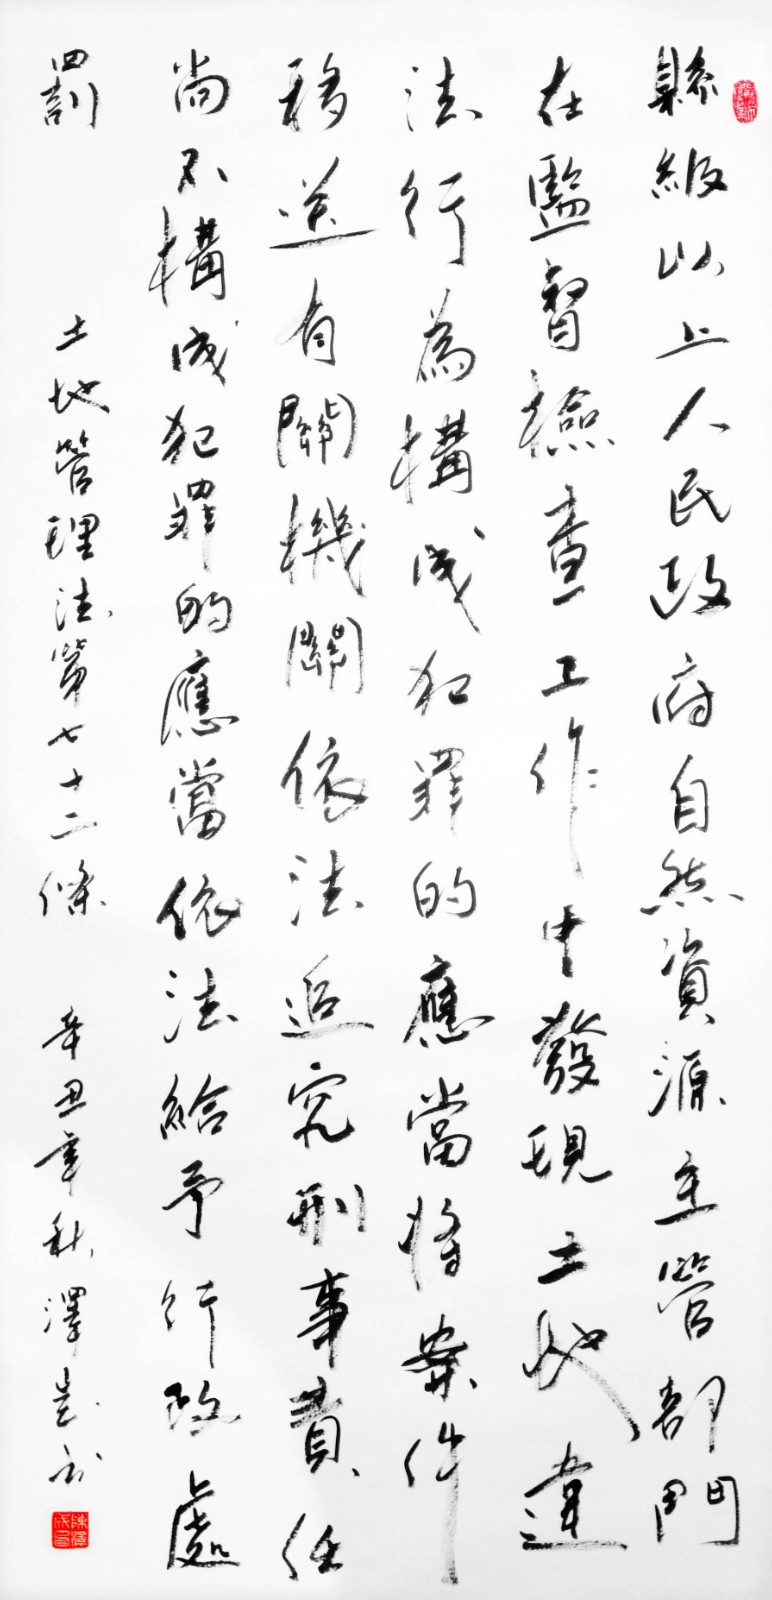 縣級以上人民政府自然資源主管部門
在監督檢查工作中發現土地違
法行為構成犯罪的應當將案件
移送有關機關依法追究刑事責任
尚不構成犯罪的應當依法給予行政處
罰
土地管理法第七十二條
辛丑年秋澤